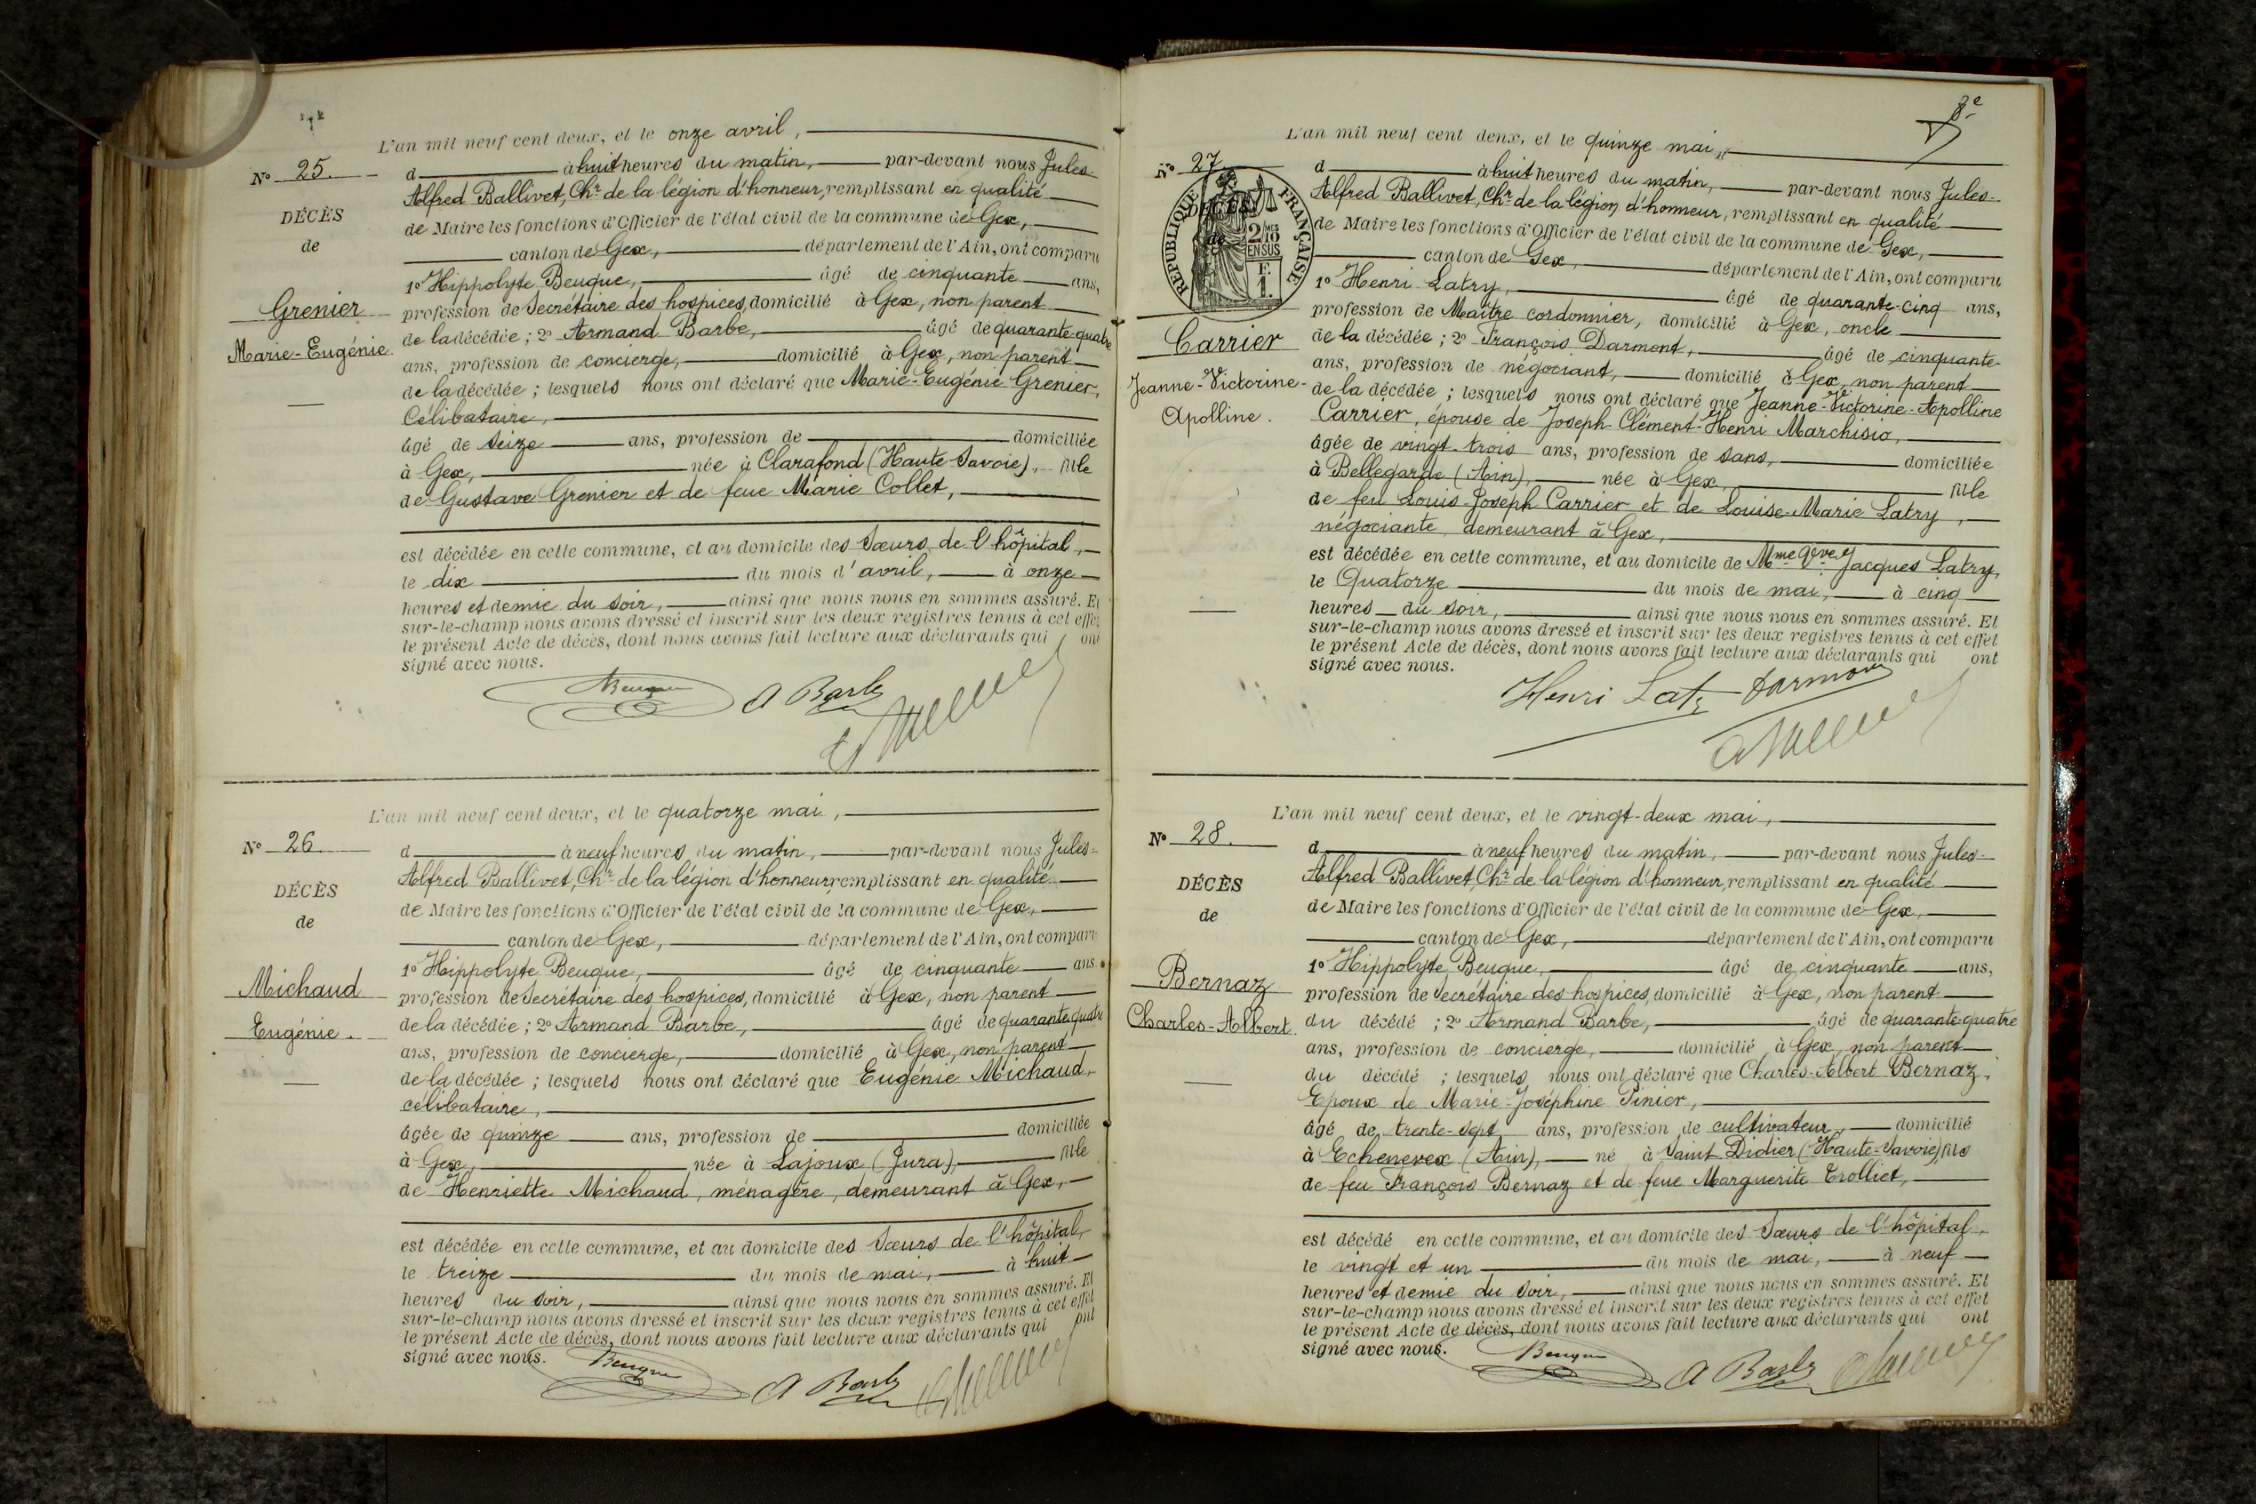 L'an mil neuf cent deux, et le onze avril,
No 25.
d à huit heures du matin, par-devant nous Jules-
Alfred Ballivet, Chr de la légion d'honneur, remplissant en qualité
DÉCÈS
de Maire les fonctions d'Officier de l'état civil de la commune de Gex,
de
canton de Gex, département de l'Ain, ont comparu
1o Hippolyte Beuque, âgé de cinquante ans,
Grenier
profession de Secrétaire des hospices, domicilié à Gex, non parent
de la décédée ; 2o Armand Barbe, âgé de quarante-quatre
Marie-Eugénie
ans, profession de concierge, domicilié à Gex, non parent
de la décédée ; lesquels nous ont déclaré que Marie-Eugénie Grenier,
Célibataire,
âgé de seize ans, profession de domiciliée
à Gex, née à Clarafond (Haute-Savoie), fille
de Gustave Grenier et de feue Marie Collet,
est décédée en cette commune, et au domicile des Sœurs de l'hôpital,
le dix du mois d'avril, à onze
heures et demie du soir, ainsi que nous nous en sommes assuré. Et
sur-le-champ nous avons dressé et inscrit sur les deux registres tenus à cet effet
le présent Acte de décès, dont nous avons fait lecture aux déclarants qui ont
signé avec nous.
Beuque A Barbe
L'an mil neuf cent deux, et le quatorze mai,
No 26.
d à neuf heures du matin, par-devant nous Jules-
Alfred Ballivet, Chr de la légion d'honneur, remplissant en qualité
DÉCÈS
de Maire les fonctions d'Officier de l'état civil de la commune de Gex,
de
canton de Gex, département de l'Ain, ont comparu
1o Hippolyte Beuque, âgé de cinquante ans
Michaud
profession de Secrétaire des hospices, domicilié à Gex, non parent
Eugénie.
de la décédée ; 2o Armand Barbe, âgé de quarante-quatre
ans, profession de concierge, domicilié à Gex, non parent
de la décédée ; lesquels nous ont déclaré que Eugénie Michaud,
célibataire,
âgée de quinze ans, profession de domiciliée
à Gex, née à Lajoux (Jura), fille
de Henriette Michaud, ménagère, demeurant à Gex,
est décédée en cette commune, et au domicile des Sœurs de l'hôpital,
le treize du mois de mai, à huit
heures du soir, ainsi que nous nous en sommes assuré. Et
sur-le-champ nous avons dressé et inscrit sur les deux registres tenus à cet effet
le présent Acte de décès, dont nous avons fait lecture aux déclarants qui ont
signé avec nous.
Beuque A Barbe
L'an mil neuf cent deux, et le quinze mai,
No 27
d à huit heures du matin, par-devant nous Jules-
Alfred Ballivet, Chr de la légion d'honneur, remplissant en qualité
DÉCÈS
de Maire les fonctions d'Officier de l'état civil de la commune de Gex,
de
RÉPUBLIQUE FRANÇAISE
2/10 MES
EN SUS
F.
1.
canton de Gex, département de l'Ain, ont comparu
1o Henri Latry, âgé de quarante-cinq ans,
profession de Maître cordonnier, domicilié à Gex, oncle
Carrier
de la décédée ; 2o François Darmont, âgé de cinquante-
ans, profession de négociant, domicilié à Gex, non parent
Jeanne-Victorine-
de la décédée ; lesquels nous ont déclaré que Jeanne-Victorine-Apolline
Apolline.
Carrier, épouse de Joseph-Clément-Henri Marchisio,
âgée de vingt-trois ans, profession de sans, domiciliée
à Bellegarde (Ain), née à Gex, fille
de feu Louis-Joseph Carrier et de Louise-Marie Latry,
négociante, demeurant à Gex,
est décédée en cette commune, et au domicile de Mme Vve Jacques Latry,
le Quatorze du mois de mai, à cinq
heures du soir, ainsi que nous nous en sommes assuré. Et
sur-le-champ nous avons dressé et inscrit sur les deux registres tenus à cet effet
le présent Acte de décès, dont nous avons fait lecture aux déclarants qui ont
signé avec nous.
Henri Latry Darmont
L'an mil neuf cent deux, et le vingt-deux mai,
No 28.
d à neuf heures du matin, par-devant nous Jules-
Alfred Ballivet, Chr de la légion d'honneur, remplissant en qualité
DÉCÈS
de Maire les fonctions d'Officier de l'état civil de la commune de Gex,
de
canton de Gex, département de l'Ain, ont comparu
1o Hippolyte Beuque, âgé de cinquante ans,
Bernaz
profession de secrétaire des hospices, domicilié à Gex, non parent
Charles-Albert.
du décédé ; 2o Armand Barbe, âgé de quarante-quatre
ans, profession de concierge, domicilié à Gex, non parent
du décédé ; lesquels nous ont déclaré que Charles-Albert Bernaz,
Epoux de Marie-Joséphine Pinier,
âgé de trente-sept ans, profession de cultivateur, domicilié
à Echenevex (Ain), né à Saint Didier (Haute-Savoie), fils
de feu François Bernaz et de feue Marguerite Trolliet,
est décédé en cette commune, et au domicile des Sœurs de l'hôpital,
le vingt et un du mois de mai, à neuf
heures et demie du soir, ainsi que nous nous en sommes assuré. Et
sur-le-champ nous avons dressé et inscrit sur les deux registres tenus à cet effet
le présent Acte de décès, dont nous avons fait lecture aux déclarants qui ont
signé avec nous.
Beuque A Barbe